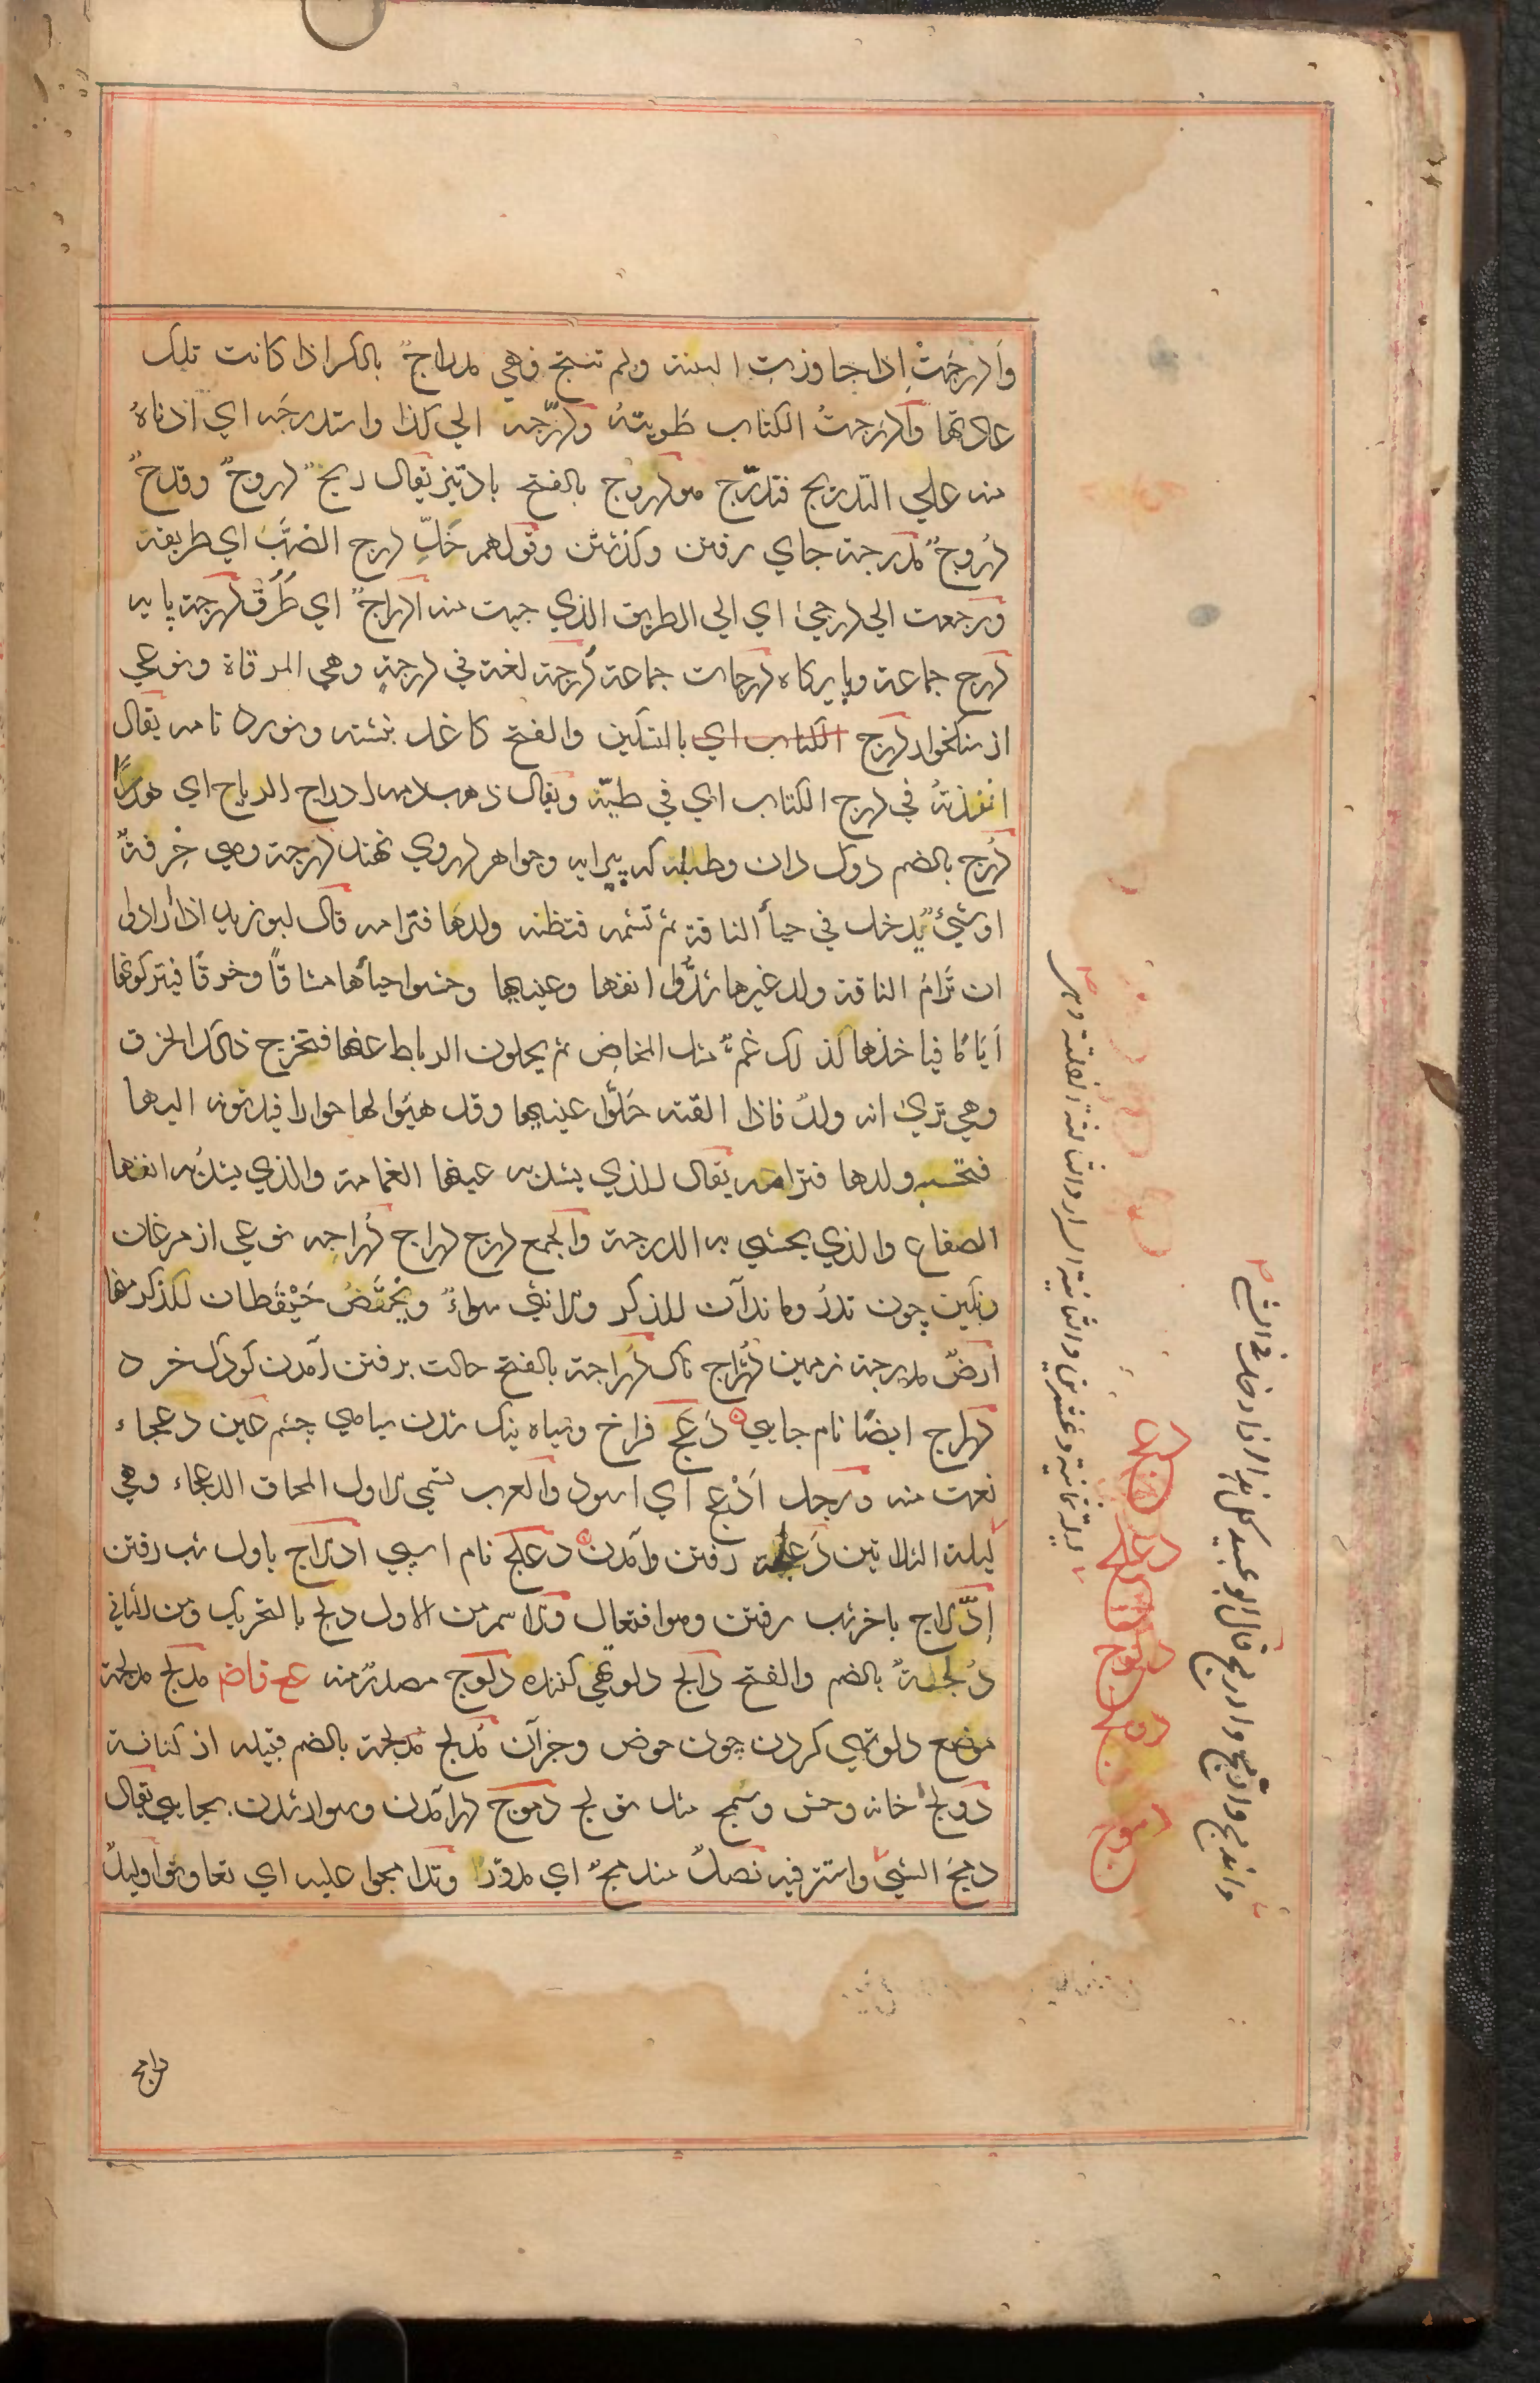 وَادرجَتْ اذا جاوزت السنة ولم تنتج فهي مدراج ٌ بالكسر اذا كانت تلك
عادتها وادرجتُ الكتاب طويتهُ ودرّجه الي كذا واستدرجَه اي ادناهُ
منه علي التدريج فتدرّج هو دروج بالفتح باد تيز يقال ريحٌ دروجٌ وقدحٌ
دروجٌ مدرجة جاي رفتن وكذشتن وقولهم خَلّ درج الضبّ اي طريقه
ورجعت الي درجي اي الي الطريق الذي جيت منه ادراجٌ اي طُرُقٌ درجة پايه
درج جماعة وپايركاه درجات جماعة دُرجة لغة في درجةٍ وهي المرقاة ونوعي
از سنكخوار درج الكتاب اي بالتسكين والفتح كاغد بنشته ونورد نامه يقال
انفذتهُ في درج الكتاب اي في طيّه ويقال ذهب دمه ادراج الرياح اي هدرًا
دُرج بالضم دوك دان وطبله كه پيرايه وجواهر دروي نهند دُرجة وهي خِرقةٌ
اوشيْءٌ يُدخل في حيأ الناقة ثم تشمه فتظنه ولدها فترامه قال ابو زيد اذا ارادوا
ان تَرام الناقة ولد غيرها شدُّوا انفها وعينيها وحشوا حيأها مشاقًا وخرقًا فيتركونها
اَيّامًا فياخذها لذلك غمٌّ مثل المخاض ثم يحلون الرباط عنها فتخرج ذلك الخرق
وهي تري انه ولدٌ فاذا القته حَلُّوا عينيها وقد هيَوا لها حوارا فيدنونه اليها
فتحسبه ولدها فترامه يقال للذي يشدّ به عينها الغمامة والذي يشدُّ به انفها
الصقاع والذي يحشي به الدرجة والجمع دُرج دراج دُراجه نوعي از مرغان
رنكين چون تدرُ وماندآن للذكر والانثي سواءٌ ويُخصَّصُ حَيْقُطان للذكر منها
ارضٌ مدرجة زمين دُرّاج ناك دُراجة بالفتح حالت برفتن آمدن كودك خرد
دراج ايضًا نام جايي دَعَج فراخ وسياه نيك شدن سياهي چشم عين دعجاء
نعت منه ورجل اَدْعج اي اسود والعرب تسمي لاول المحاق الدعجاء وهي
ليلة الثلاثين دَعلجة رفتن وآمدن دعلج نام اسپي ادلاج باول شب رفتن
اِدّلاج باخر شب رفتن وهوافتعال والاسم من الاول دلج بالتحريك ومن الثاني
دُلجةٌ بالضم والفتح دالج دلوتهي كننده دلوج مصدرٌمنه عج فاض مدلج مدلجة
موضع دلوتهي كردن چون حوض وجزآن مُدلج مُدلجة بالضم قبيله از كنانة
دَولج خانه وحش وسُمج مثل تولج دموج درآمدن وسوارشدن بجايي يقال
دمجَ الشيَ واستترفيه نصلٌ مندمجٌ اي مدوّرٌ وتدامجوا عليه اي تعاونوا وليلٌ
داج
دعج
دعلج
دلج
دلوج
دمج
دموج